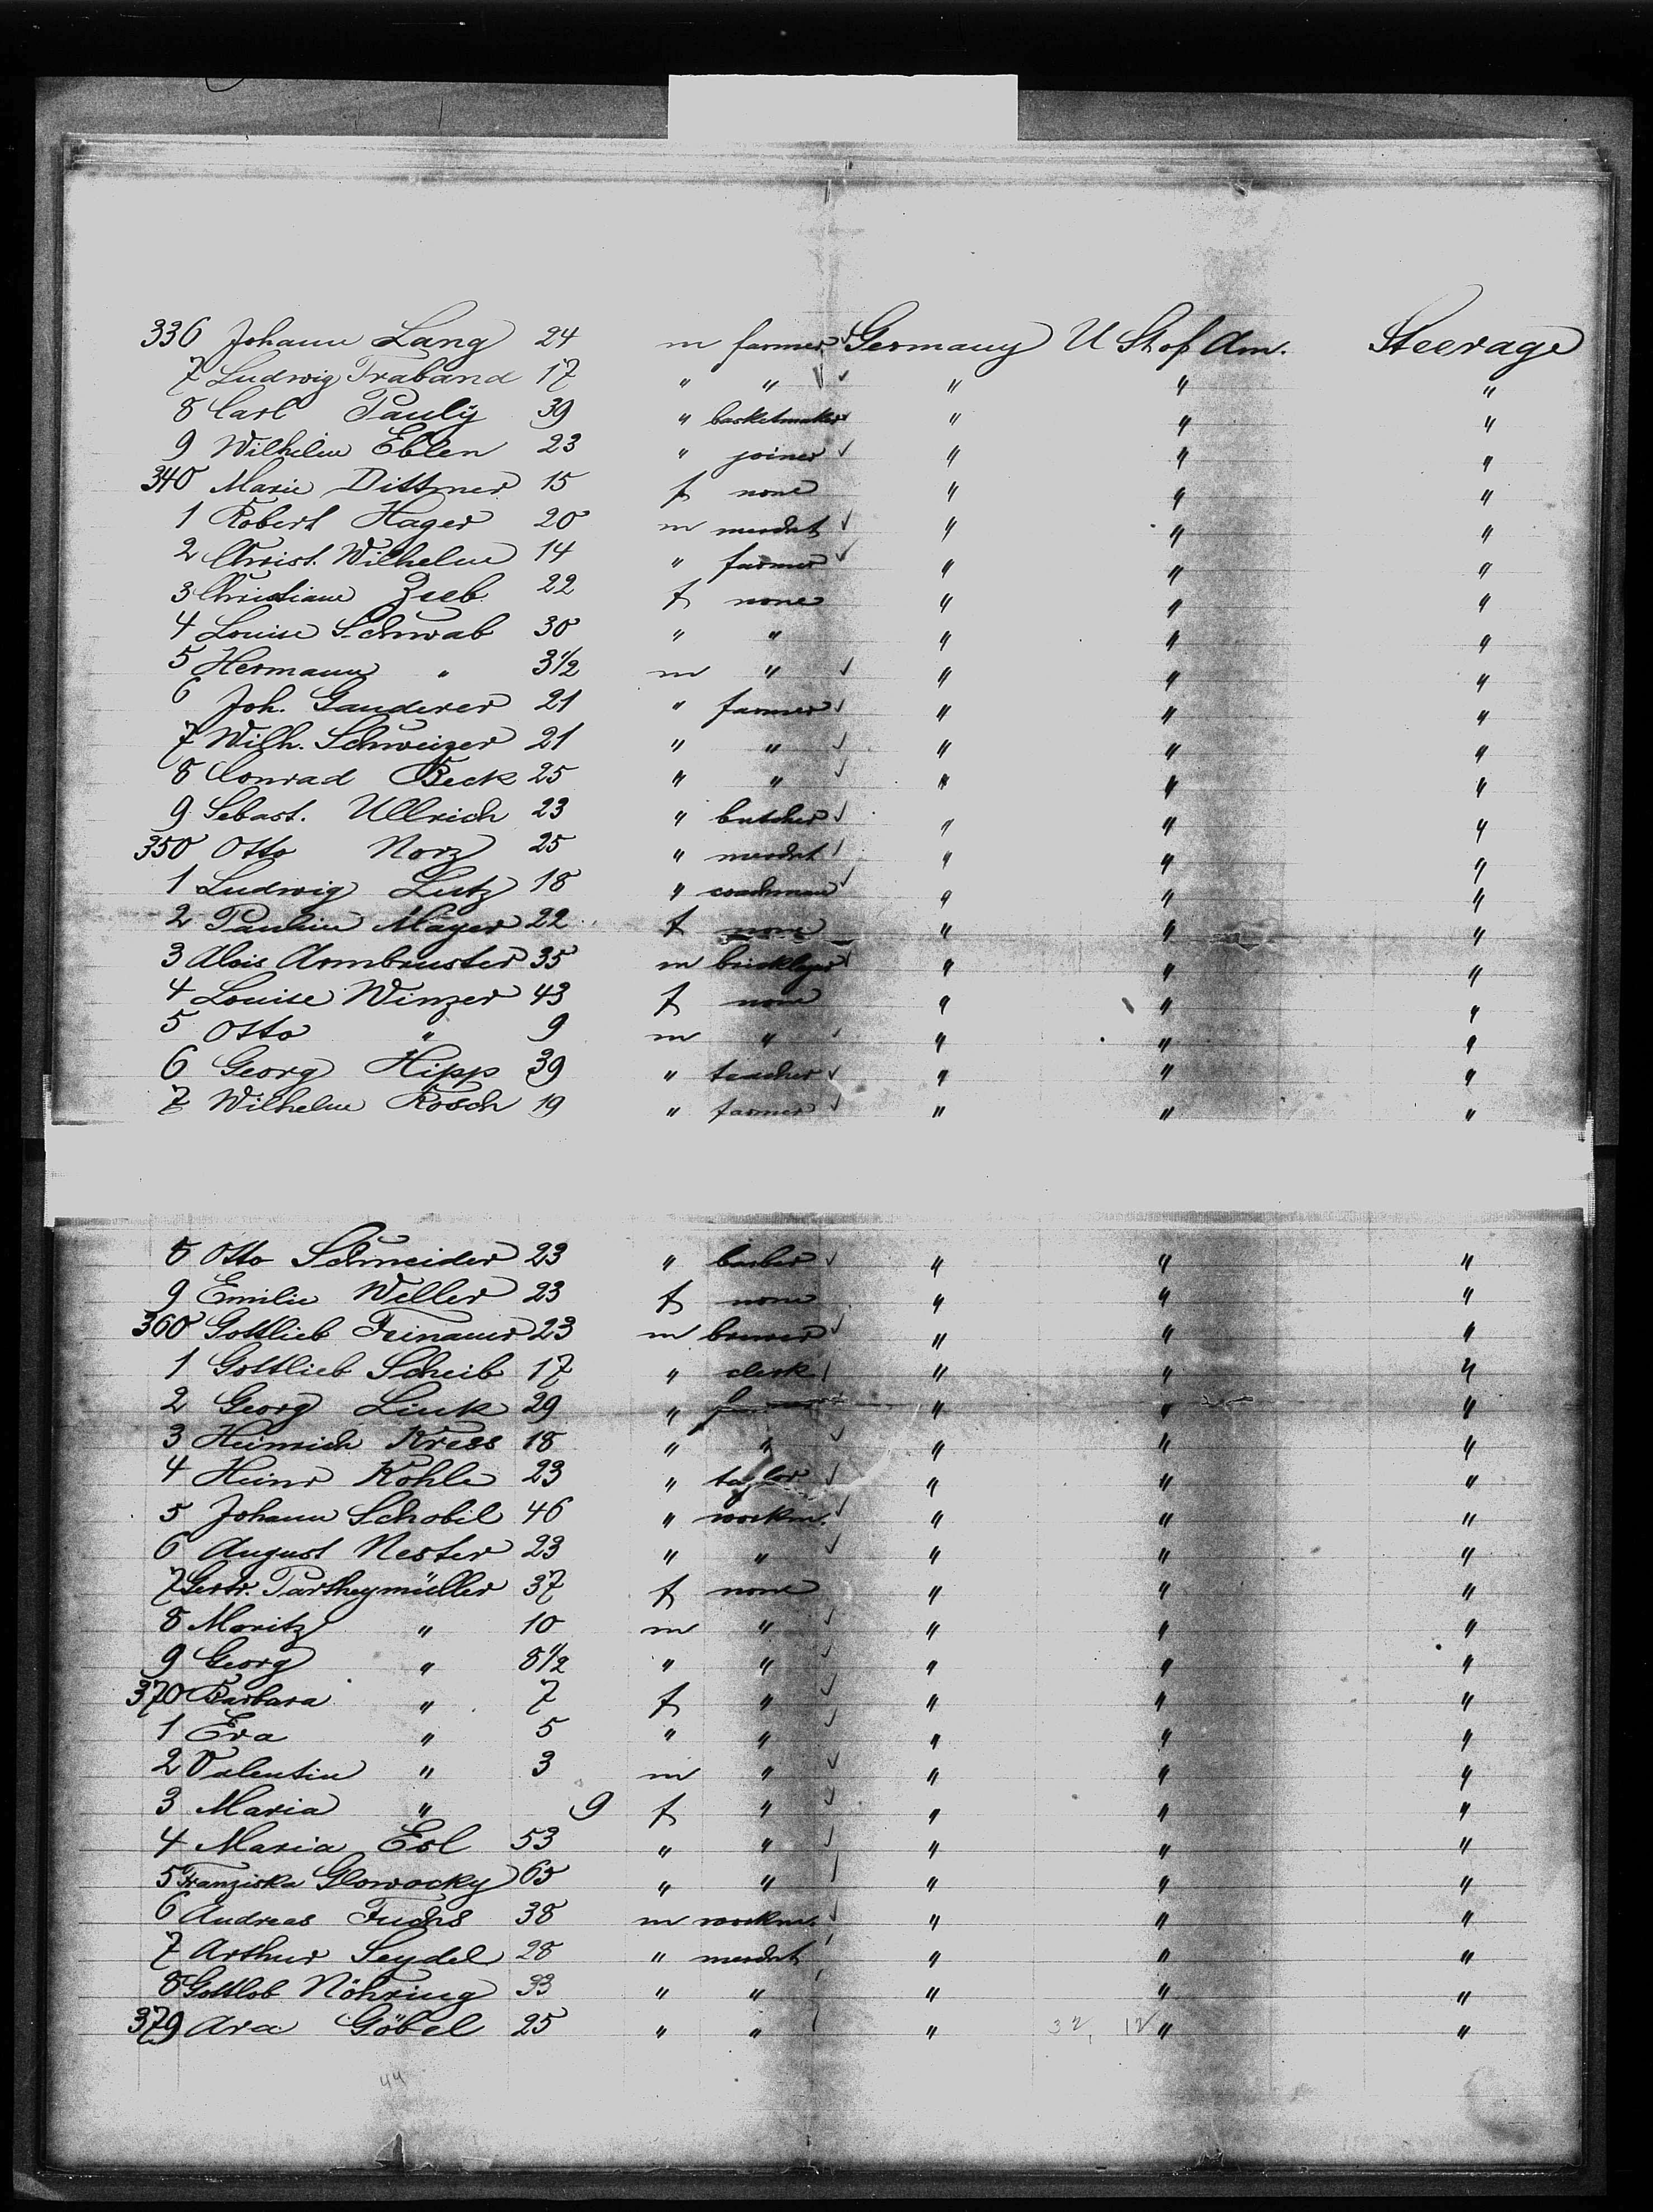 336 Johann Lang 24 m farmer Germany U St of Am. Steerage
7 Ludwig Traband 17 " " " " "
8 Carl Pauly 39 " basketmaker " " "
9 Wilhelm Eblen 23 " joiner " " "
340 Marie Dittmer 15 f none " " "
1 Robert Hager 20 m mercht " " "
2 Christ. Wilhelm 14 " farmer " " "
3 Christiane Zeeb 22 f none " " "
4 Louise Schwab 30 " " " " "
5 Hermann " 3½ m " " " "
6 Joh. Ganderer 21 " farmer " " "
7 Wilh. Schweizer 21 " " " " "
8 Conrad Beck 25 " " " " "
9 Sebast. Ullrich 23 " butcher " " "
350 Otto Norz 25 " mercht " " "
1 Ludwig Lutz 18 " coachman " " "
2 Pauline Mayer 22 f none " " "
3 Alois Armbruster 35 m bricklayer " " "
4 Louise Winzer 43 f none " " "
5 Otto " 9 m " " " "
6 Georg Hipp 39 " teacher " " "
7 Wilhelm Rosch 19 " farmer " " "
8 Otto Schneider 23 " barber " " "
9 Emilie Weller 23 f none " " "
360 Gottlieb Feinauer 23 m brewer " " "
1 Gottlieb Scheib 17 " clerk " " "
2 Georg Link 29 " " " "
3 Heinrich Kress 18 " " " " "
4 Heinr Kohle 23 " taylor " " "
5 Johann Schobil 46 " workm. " " "
6 August Nester 23 " " " " "
7 Gertr. Partheymüller 37 f none " " "
8 Moritz " 10 m " " " "
9 Georg " 8½ " " " " "
370 Barbara " 7 f " " " "
1 Eva " 5 " " " " "
2 Valentin " 3 m " " " "
3 Maria " 9 f " " " "
4 Maria Erl 53 " " " " "
5 Franziska Glowacky 65 " " " " "
6 Andreas Fuchs 38 m workm. " " "
7 Arthur Seydel 28 " mercht " " "
8 Gottlob Nöhring 33 " " " " "
379 Ara Göbel 25 " " " 32, 12 " "
44